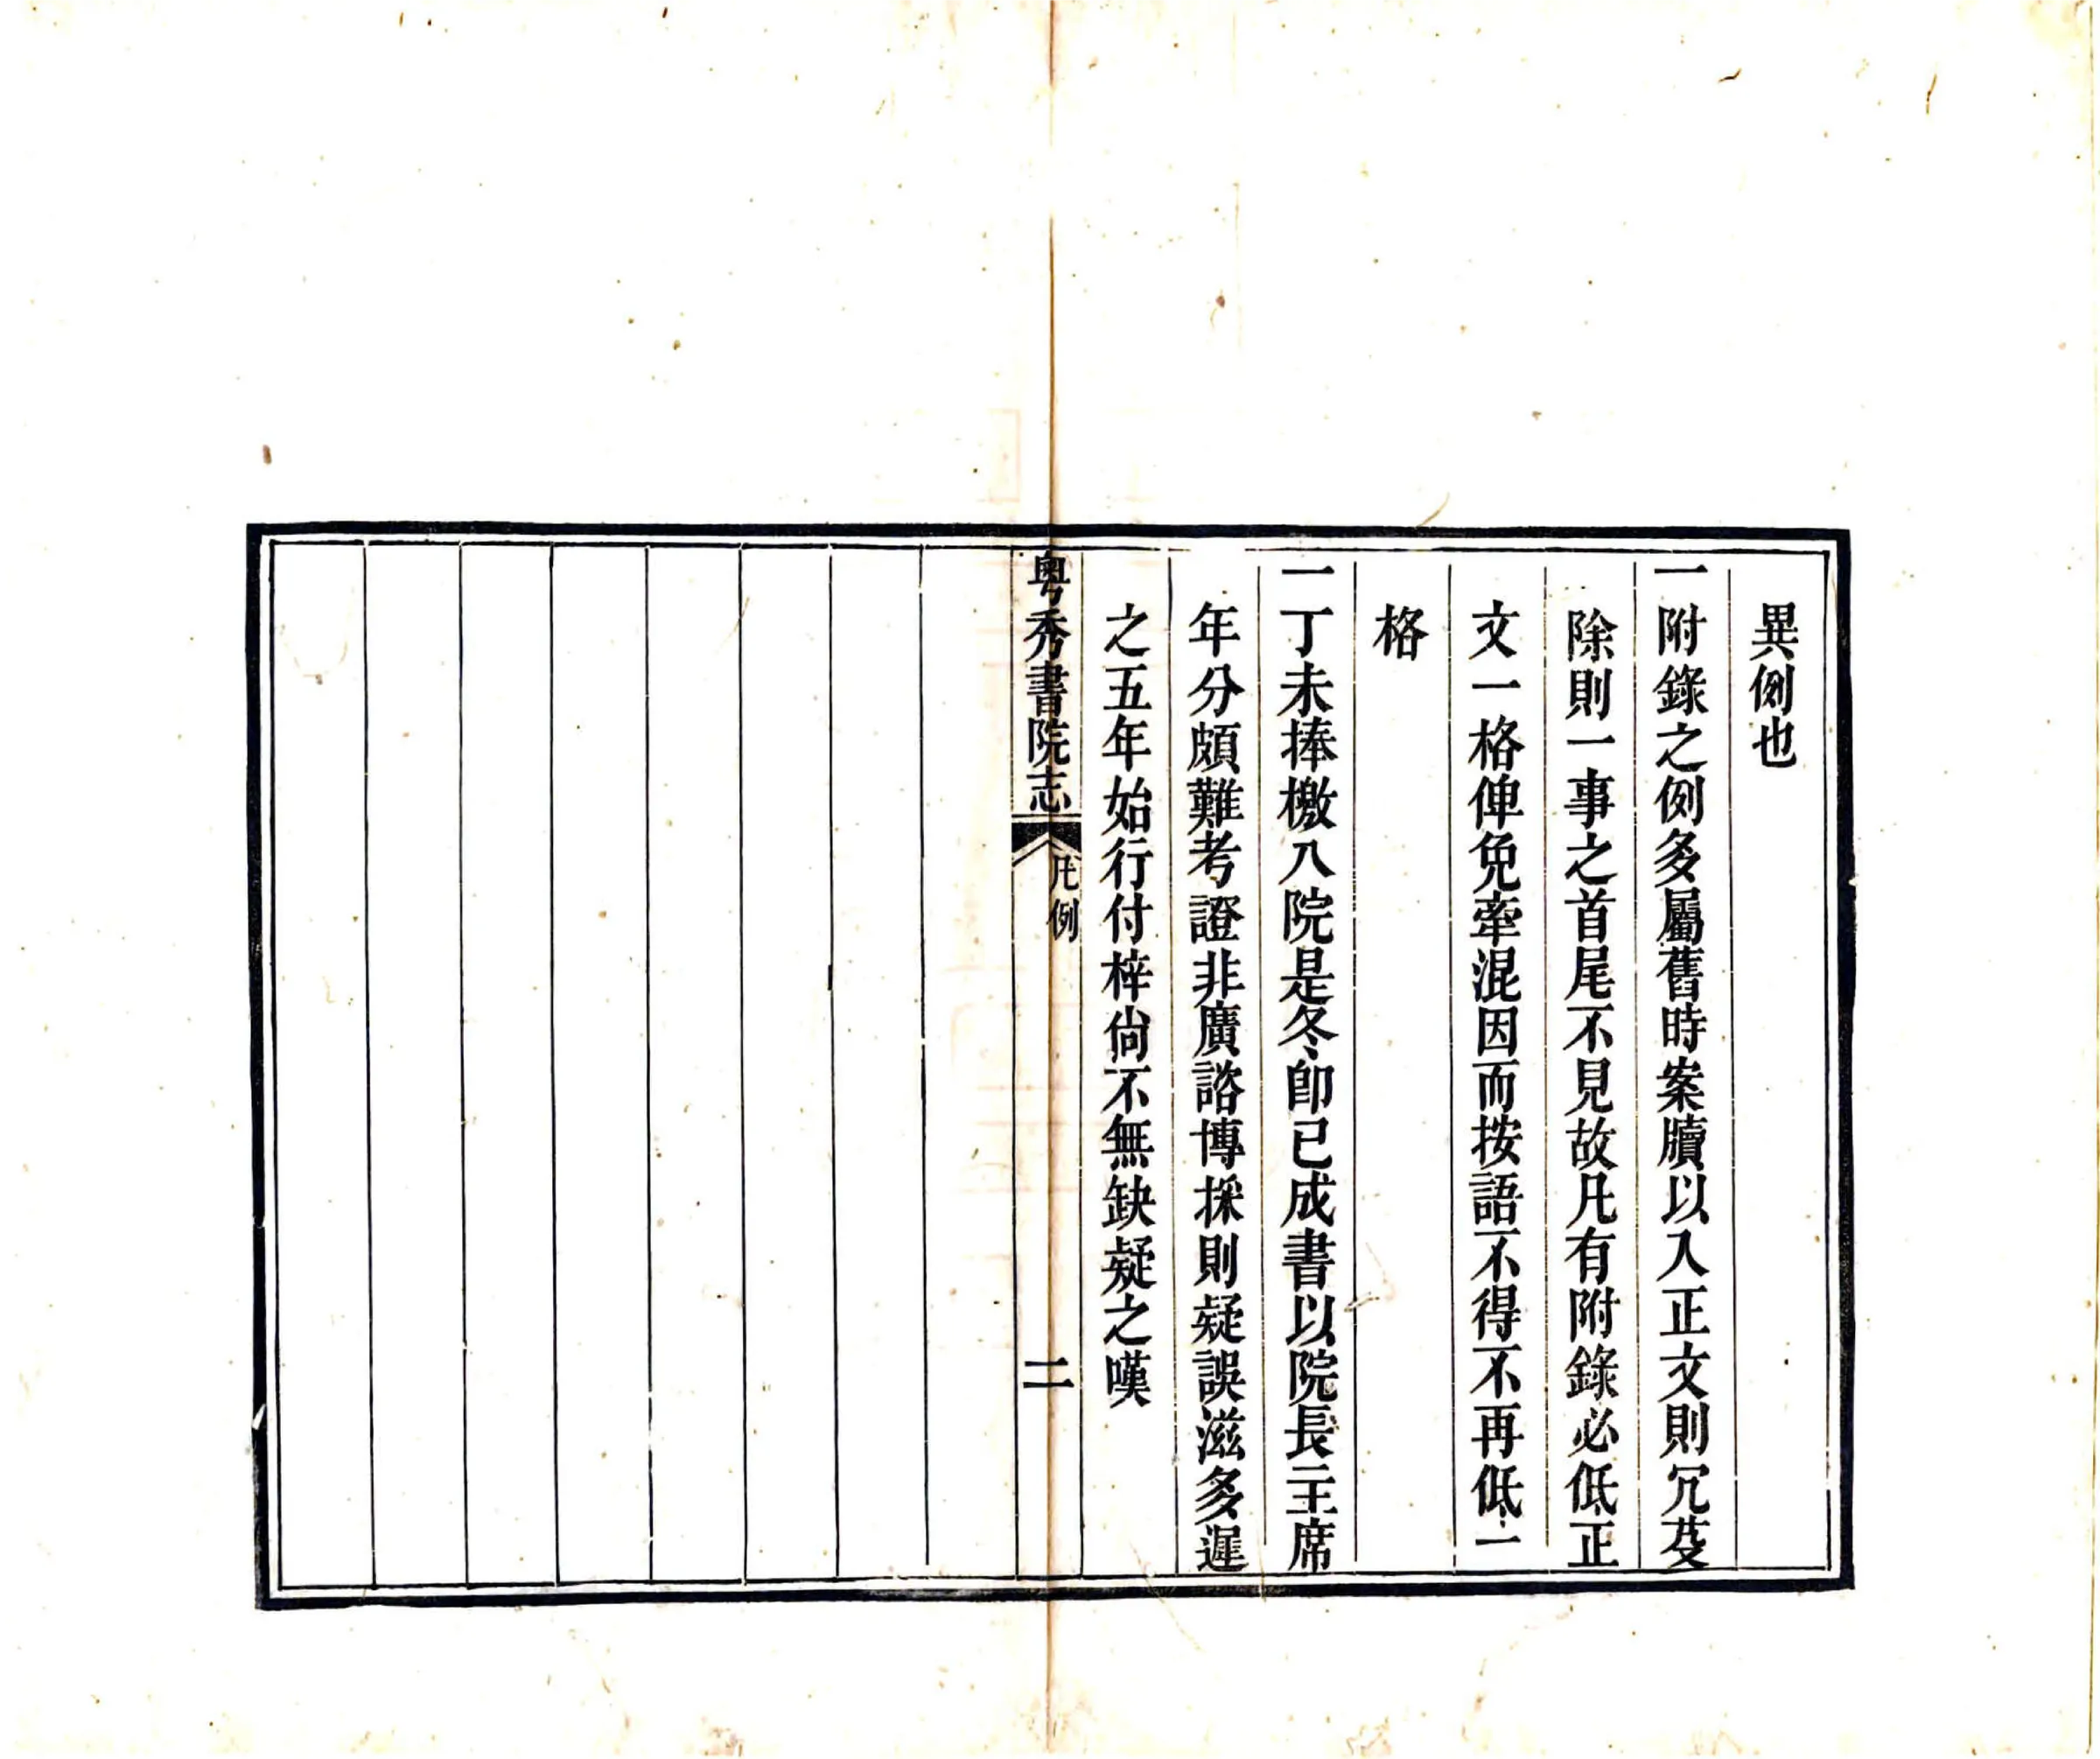 異例也
一附錄之例多屬舊時案牘以入正文則冗芟
除則一事之首尾不見故凡有附錄必低正
文一格俾免牽混因而按語不得不再低一
格
一丁未捧檄入院是冬卽已成書以院長主席
年分頗難考證非廣諮博採則疑誤滋多遲
之五年始行付梓尙不無缺疑之嘆
粤秀書院志 凡例 二